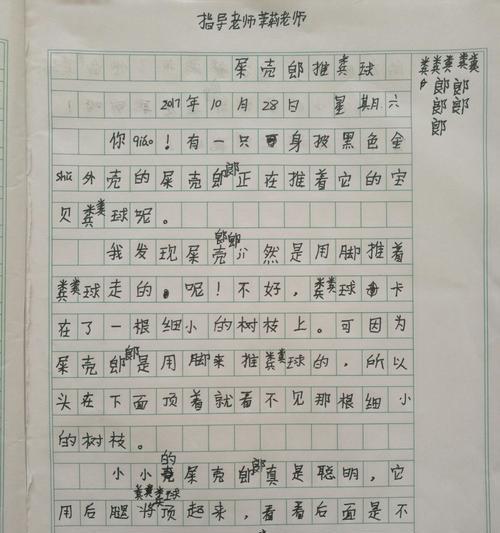 指导老师苹莉老师
屎壳郎推粪球
2017年10月28日 星期六
你qiáo！有一只身披黑色金
shǔ外壳的屎壳郎正在推着它的宝
贝粪球呢。
我发现屎壳郎然是用脚推着
粪球走的。呢！不好，粪球卡
在了一根细小的树枝上。可因为
屎壳郎是用脚来推粪球的，所以
头在下面顶着就看不见那根细小
的树枝。
小小的屎壳郎真是聪明，它
用后腿将粪球顶起来，看看后面是不
粪粪粪粪粪
郎郎
郎郎
郎